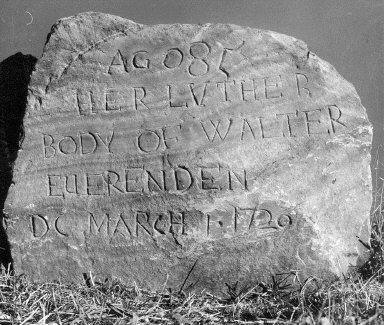 AGO 85
HER LVTHER
BODY OF WALTER
EUERENDEN
DC MARCH 1 · 1720